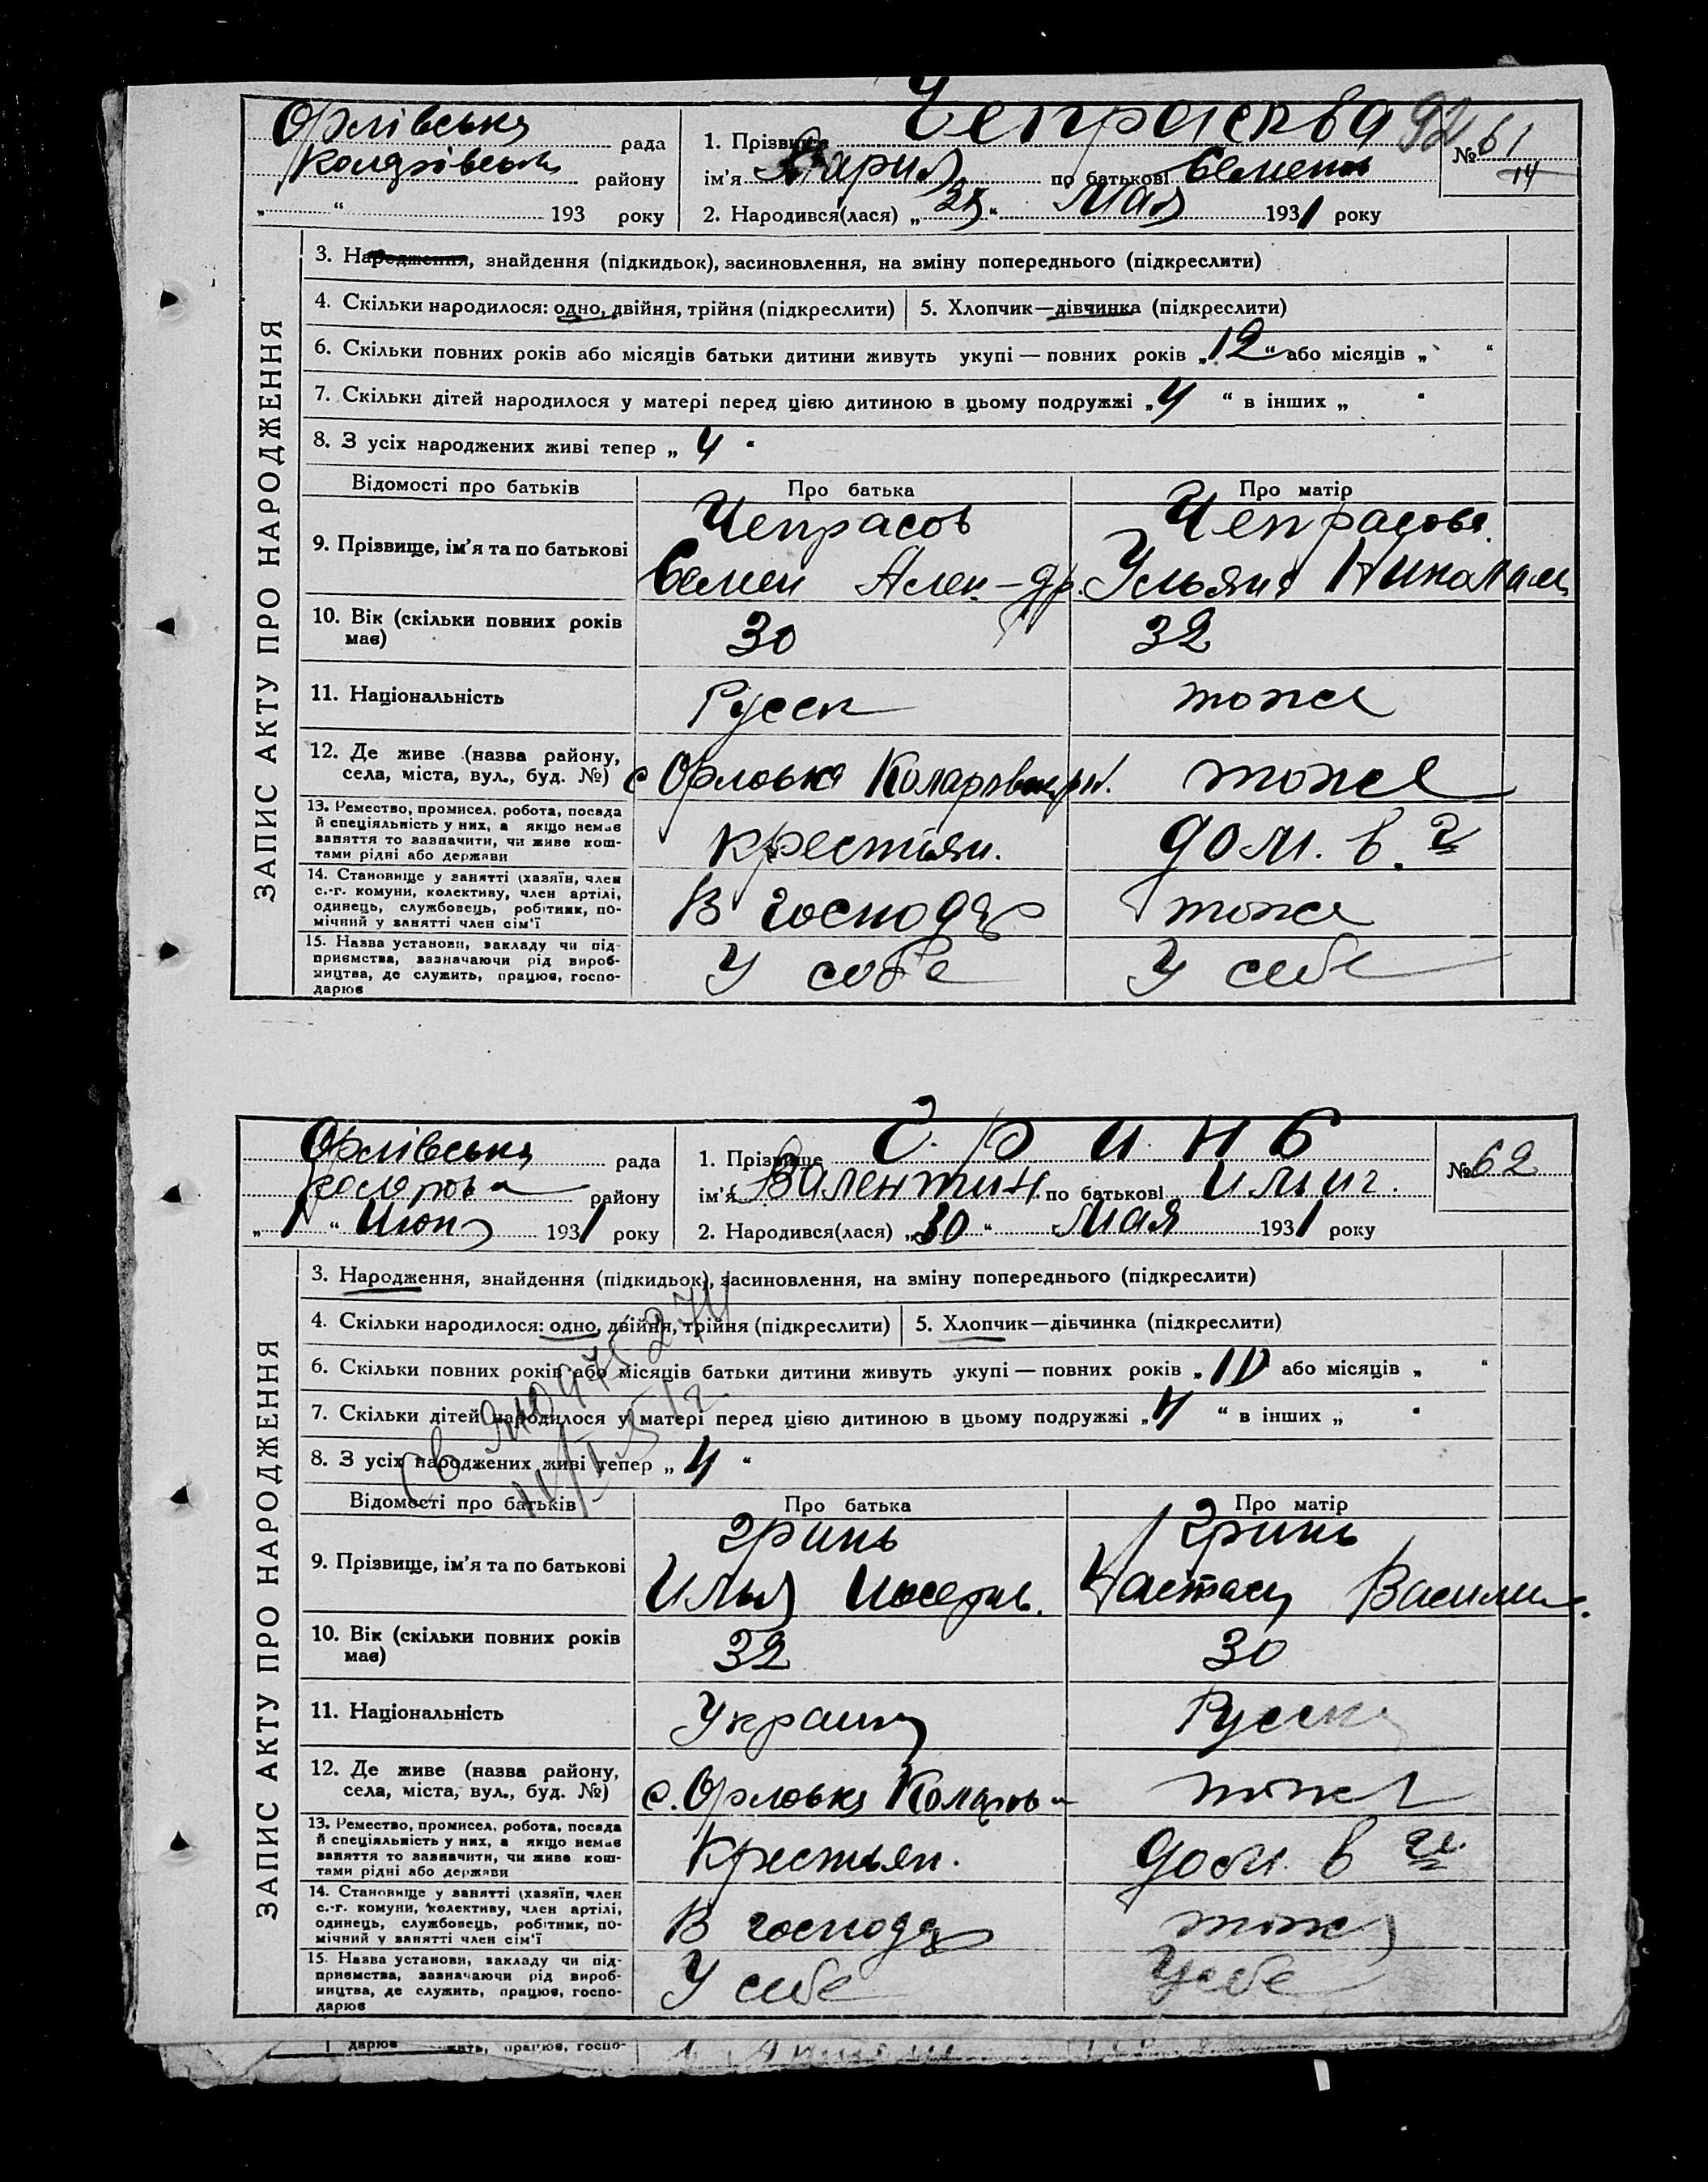 Орлівська рада
Коларівськ району
„ “ 193 року
1. Прізвище Чепрасова
ім'я Мария по батькові Семенов
2. Народився(лася) „ “ Мая 1931 року
92
№ 61
14
ЗАПИС АКТУ ПРО НАРОДЖЕННЯ
3. Народження, знайдення (підкидьок), засиновлення, на зміну попереднього (підкреслити)
4. Скільки народилося: одно, двійня, трійня (підкреслити) 5. Хлопчик—дівчинка (підкреслити)
6. Скільки повних років або місяців батьки дитини живуть укупі — повних років „12“ або місяців „ “
7. Скільки дітей народилося у матері перед цією дитиною в цьому подружжі „4 “ в інших „ “
8. З усіх народжених живі тепер „ 4 “
Відомості про батьків Про батька Про матір
9. Прізвище, ім'я та по батькові
Чепрасов Чепрасова
Семен Алек-др. Ульяна Николаев
10. Вік (скільки повних років
має)
30 32
11. Національність Русск тоже
12. Де живе (назва району,
села, міста, вул., буд. №) с Орловка Коларовск рн. тоже
13. Ремество, промисел, робота, посада
й спеціяльність у них, а якщо немає
заняття то зазначити, чи живе кош-
тами рідні або держави
крестьян. дом. в.
14. Становище у занятті (хазяїн, член
с.-г. комуни, колективу, член артілі,
одинець, службовець, робітник, по-
мічний у занятті член сім'ї
В господ тоже
15. Назва установи, закладу чи під-
приємства, зазначаючи рід вироб-
ництва, де служить, працює, госпо-
дарює
У себе У себе
Орлівська рада
Коларов району
„1“ Июня 1931 року
1. Прізвище Гринь
ім'я Валентин по батькові Ильич.
2. Народився(лася) „30“ Мая 1931 року
№ 62
ЗАПИС АКТУ ПРО НАРОДЖЕННЯ
3. Народження, знайдення (підкидьок), засиновлення, на зміну попереднього (підкреслити)
4. Скільки народилося: одно, двійня, трійня (підкреслити) 5. Хлопчик—дівчинка (підкреслити)
6. Скільки повних років або місяців батьки дитини живуть укупі — повних років „10 або місяців „ “
7. Скільки дітей народилося у матері перед цією дитиною в цьому подружжі „4 “ в інших „ “
8. З усіх народжених живі тепер „ 4 “
Відомості про батьків Про батька Про матір
9. Прізвище, ім'я та по батькові
Гринь Гринь
Илья Иосефов. Настасия Василив.
10. Вік (скільки повних років
має)
32 30
11. Національність Украинц Русска
12. Де живе (назва району,
села, міста, вул., буд. №) с. Орловка Коларов тоже
13. Ремество, промисел, робота, посада
й спеціяльність у них, а якщо немає
заняття то зазначити, чи живе кош-
тами рідні або держави
Крестьян. дом. в
14. Становище у занятті (хазяїн, член
с.-г. комуни, колективу, член артілі,
одинець, службовець, робітник, по-
мічний у занятті член сім'ї
В господ тоже
15. Назва установи, закладу чи під-
приємства, зазначаючи рід вироб-
ництва, де служить, працює, госпо-
дарює
У себе У себе
дарює працює, госпо-